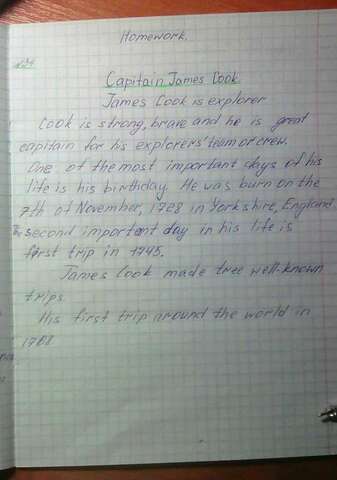 Homework.
№34
Capitain James Cook
James Cook is explorer
Cook is strong, brave and he is great
capitain for his explorers' team or crew.
One of the most important days of his
life is his birthday. He was burn on the
7th of November, 1728 in Yorkshire, England
The second important day in his life is
first trip in 1745.
James Cook made tree well-known
trips.
His first trip around the world in
1768